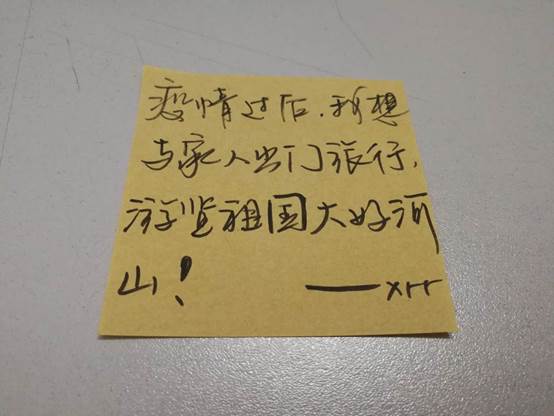 疫情过后，我想
与家人出门旅行，
游览祖国大好河
山！ ——xrr